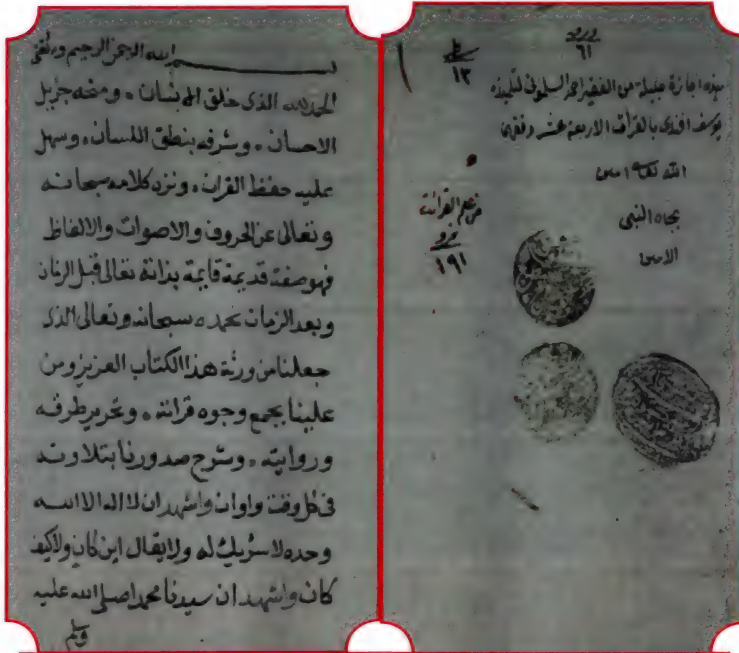 ورود
٦١
١٣
هذه اجازة جليلة من الفقير احمد السلموني لتلميذه
يوسف افندي بالقرأت الاربعة عشر وفقهما
الله تعالى امين
بجاه النبي
الامين
من علم القرائت
نمرو
١٩١
بسم الله الرحمن الرحيم وبه ثقتي
الحمد لله الذي خلق الانسان ۰ ومنحه جزيل
الاحسان ۰ وشرفه بنطق اللسان ۰ وسهل
عليه حفظ القران ۰ ونزه كلامه سبحانه
وتعالى عن الحروف والاصوات والالفاظ
فهو صفة قديمة قايمة بذاته تعالى قبل الزمان
وبعد الزمان نحمده سبحانه وتعالى الذي
جعلنا من ورثة هذا الكتاب العزيز ومن
علينا بجمع وجوه قراته ۰ وتحرير طرقه
وروايته ۰ وشرح صدورنا بتلاوته
في كل وقت واوان واشهد ان لا اله الا الله
وحده لا شريك له ولا يقال اين كان ولا كيف
كان واشهد ان سيدنا محمدا صلى الله عليه
وسلم